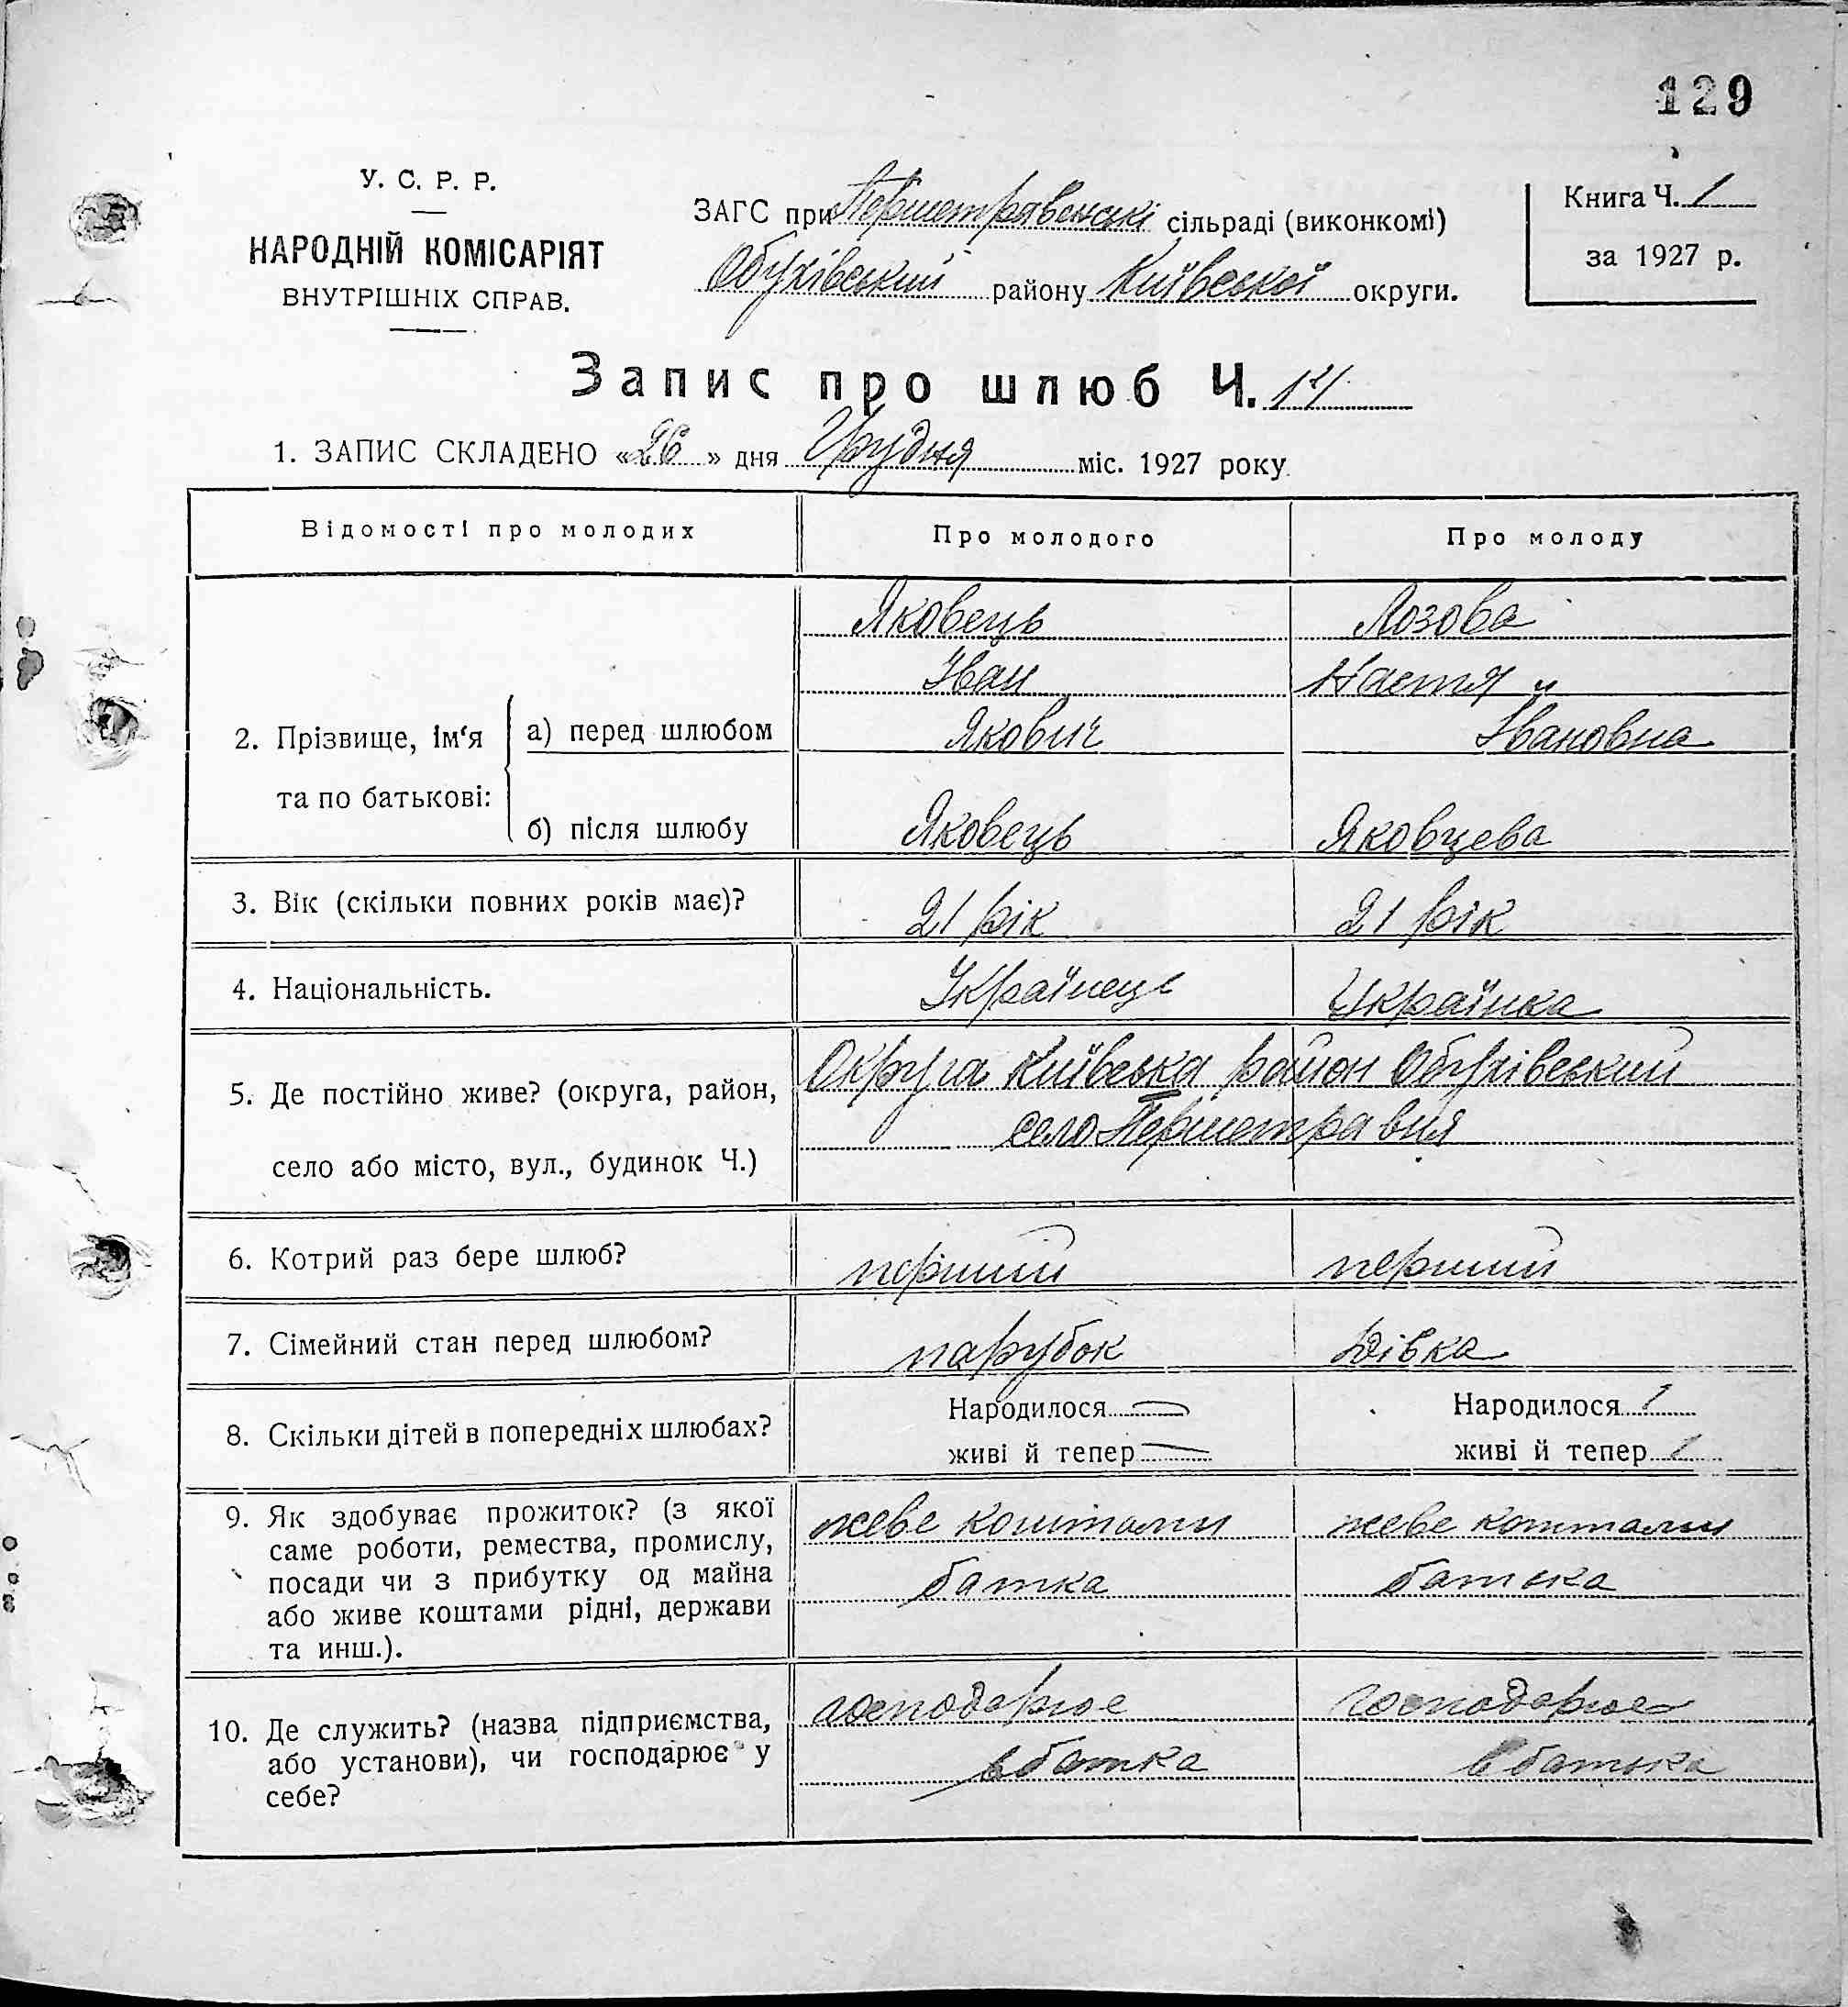 129
У. С. Р. Р.
НАРОДНІЙ КОМІСАРІЯТ
ВНУТРІШНІХ СПРАВ.
ЗАГС при Першетравенські сільраді (виконкомі)
Обухівський району Київської округи.
Книга Ч. 1
за 1927 р.
Запис про шлюб Ч. 14
1. ЗАПИС СКЛАДЕНО «26» дня Грудня міс. 1927 року
Відомості про молодих Про молодого Про молоду
Яковець Лозова
Іван Настя
2. Прізвище, ім'я а) перед шлюбом Якович Івановна
та по батькові:
б) після шлюбу Яковець Яковцева
3. Вік (скільки повних років має)? 21 рік 21 рік
4. Національність. Українець Українка
5. Де постійно живе? (округа, район, Округа Київська район Обухівський
село Першетравня
село або місто, вул., будинок Ч.)
6. Котрий раз бере шлюб? перший перший
7. Сімейний стан перед шлюбом? парубок дівка
8. Скільки дітей в попередніх шлюбах? Народилося — Народилося 1
живі й тепер — живі й тепер 1
9. Як здобуває прожиток? (з якої жеве коштами жеве коштами
саме роботи, ремества, промислу,
посади чи з прибутку од майна батка батька
або живе коштами рідні, держави
та инш.).
10. Де служить? (назва підприємства, господарює господарює
або установи), чи господарює у в батка в батька
себе?